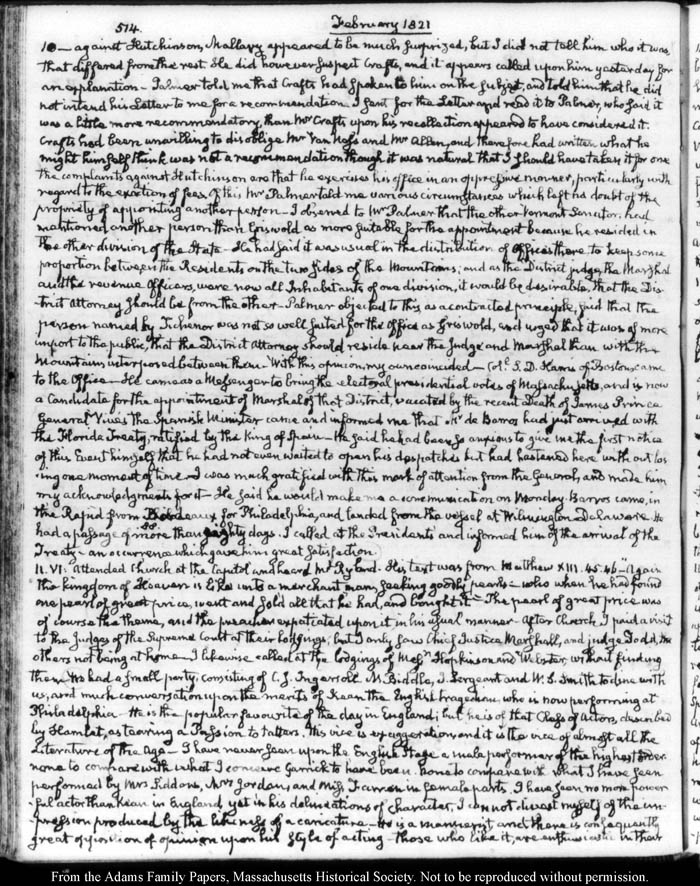 514. February 1821
10 — against Hutchinson, Mallary appeared to be much surprized, but I did not tell him who it was
that differed from the rest. He did however suspect Crafts, and it appears called upon him yesterday for
an explanation — Palmer told me that Crafts had spoken to him on the subject, and told him that he did
not intend his Letter to me for a recommendation. I sent for the Letter and read it to Palmer, who said it
was a little more recommendatory, than Mr Crafts upon his recollection appeared to have considered it.
Crafts had been unwilling to disoblige Mr Van Ness and Mr Allen, and therefore had written what he
might himself think was not a recommendation though it was natural that I should have taken it for one
the complaints against Hutchinson are that he exercises his office in an oppressive manner, particularly with
regard to the exaction of fees. Of this Mr Palmer told me various circumstances which left no doubt of the
propriety of appointing another person — I observed to Mr Palmer that the other Vermont Senator had
mentioned another person than Griswold as more suitable for the appointment because he resided in
the other division of the State — He had said it was usual in the distribution of Offices there to keep some
proportion between the Residents on the two sides of the Mountains; and as the District judge, the Marshal
and the revenue Officers, were now all Inhabitants of one division, it would be desirable, that the Dis-
trict Attorney should be from the other — Palmer objected to this as a contracted principle, said that the
person named by Tichenor was not so well suited for the Office as Griswold, and urged that it was of more
import to the public, that the District Attorney should reside near the Judge and Marshal than with the
Mountain interposed between them. With this opinion, my own coincided — Col. S. D. Harris of Boston, came
to the Office — He came as a Messenger to bring the electoral presidential votes of Massachusetts, and is now
a Candidate for the appointment of Marshal of that District, vacated by the recent Death of James Prince
General Vives the Spanish Minister came and informed me that Mr de Barros had just arrived with
the Florida Treaty, ratified by the King of Spain — He said he had been so anxious to give me the first notice
of this Event himself that he had not even waited to open his despatches but had hastened here without los-
ing one moment of time — I was much gratified with this mark of attention from the General, and made him
my acknowledgments for it — He said he would make me a communication on Monday. Barros came, in
the Rapid from Bordeaux for Philadelphia, and landed from the vessel at Wilmington Delaware. He
had a passage of more than eighty days. I called at the Presidents and informed him of the arrival of the
Treaty — an occurrence which gave him great satisfaction.
11. VI: Attended Church at the Capitol and heard Mr Ryland. His text was from Matthew XIII. 45.46 — "Again
the kingdom of Heaven is like unto a merchant man, seeking goodly pearls — who when he had found
one pearl of great price, went and sold all that he had, and bought it" — The pearl of great price was
of course the theme, and the preacher expatiated upon it in his usual manner — After Church I paid a visit
to the Judges of the Supreme Court at their lodgings, but I only saw Chief Justice Marshall, and judge Todd, the
others not being at home — I likewise called at the lodgings of Messrs Hopkinson and Webster, without finding
them. We had a small party, consisting of C. J. Ingersoll, N. Biddle, J. Sergeant and W. S. Smith to dine with
us, and much conversation upon the merits of Kean the English tragedian who is now performing at
Philadelphia — He is the popular favourite of the day in England; but he is of that Class of Actors, described
by Hamlet, as tearing a Passion to tatters. His vice is exaggeration, and it is the vice of almost all the
Literature of the Age — I have never seen upon the English Stage a male performer of the highest order
none to compare with what I conceive Garrick to have been. None to compare with what I have seen
performed by Mrs Siddons, Mrs Jordan, and Miss Farren in female parts, I have seen no more power-
ful actor than Kean in England yet in his delineations of character, I cannot divest myself of the im-
pression produced by the likeness of a caricature — He is a mannerist and there is consequently
great opposition of opinion upon his style of acting — Those who like it, are enthusiastic in their
From the Adams Family Papers, Massachusetts Historical Society. Not to be reproduced without permission.